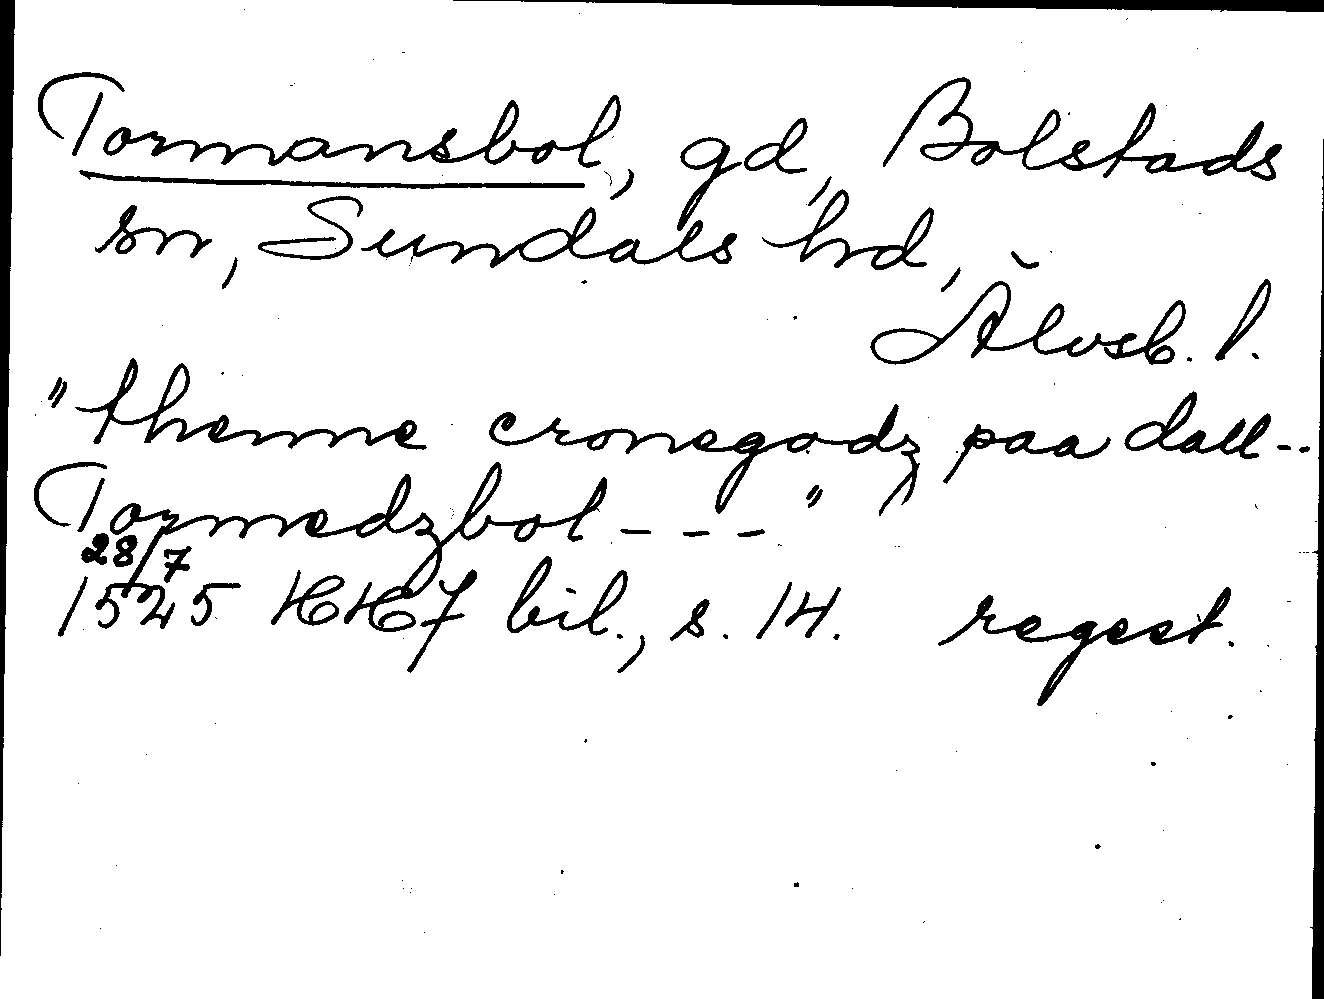 Tormansbol, gd, Bolstads
sn, Sundals hd,
Älvsb. l.
"thenne cronegodz paa dall--
Tormedzbol - - - "
28/7
1525 HH7 bil., s. 14. regest.